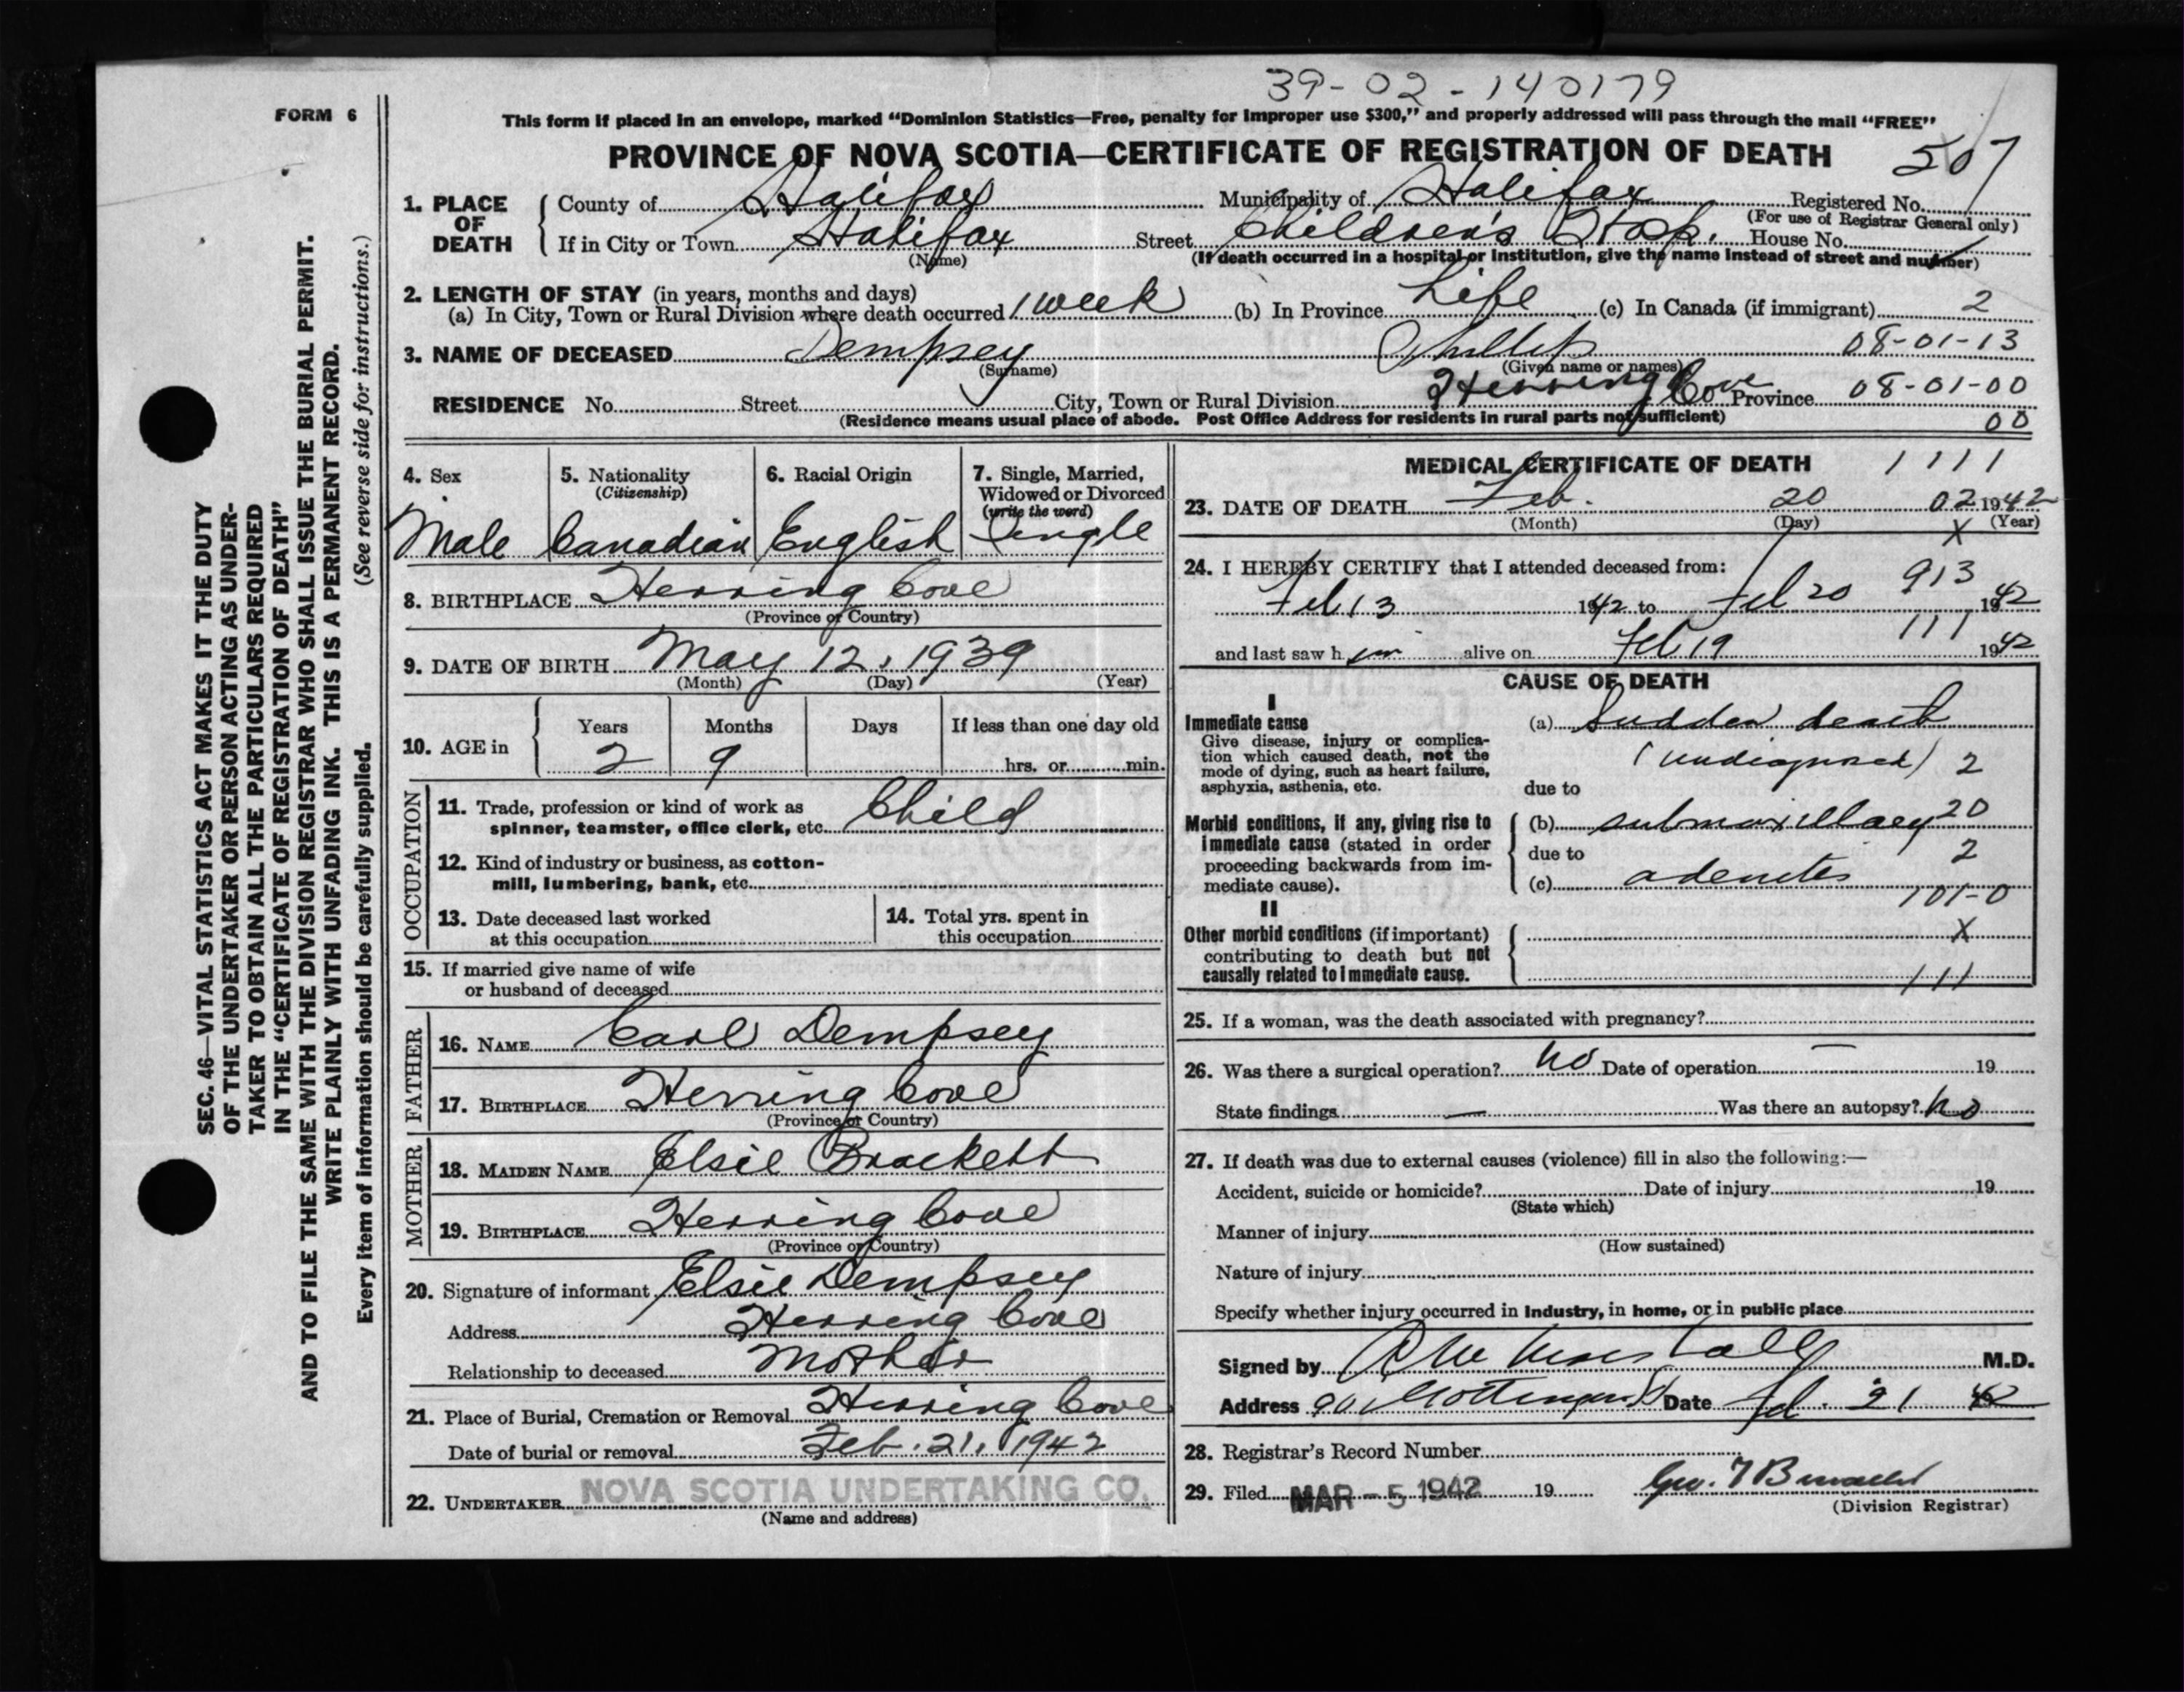 39-02-140179
FORM 6
This form if placed in an envelope, marked "Dominion Statistics—Free, penalty for improper use $300," and properly addressed will pass through the mail "FREE"
PROVINCE OF NOVA SCOTIA—CERTIFICATE OF REGISTRATION OF DEATH 507
1. PLACE OF DEATH
County of Halifax Municipality of Halifax Registered No.
(For use of Registrar General only)
If in City or Town Halifax Street Children's Hosp. House No.
(Name) (If death occurred in a hospital or institution, give the name instead of street and number)
2. LENGTH OF STAY (in years, months and days)
(a) In City, Town or Rural Division where death occurred 1 week (b) In Province Life (c) In Canada (if immigrant) 2
3. NAME OF DECEASED Dempsey Phillip 08-01-13
(Surname) (Given name or names)
RESIDENCE No. Street City, Town or Rural Division Herring Cove Province 08-01-00
(Residence means usual place of abode. Post Office Address for residents in rural parts not sufficient) 00
4. Sex Male
5. Nationality (Citizenship) Canadian
6. Racial Origin English
7. Single, Married, Widowed or Divorced (write the word) Single
8. BIRTHPLACE Herring Cove
(Province or Country)
9. DATE OF BIRTH May 12, 1939
(Month) (Day) (Year)
10. AGE in Years 2 Months 9 Days If less than one day old hrs. or min.
OCCUPATION
11. Trade, profession or kind of work as spinner, teamster, office clerk, etc. Child
12. Kind of industry or business, as cotton-
mill, lumbering, bank, etc.
13. Date deceased last worked
at this occupation
14. Total yrs. spent in
this occupation
15. If married give name of wife
or husband of deceased
FATHER
16. NAME Carl Dempsey
17. BIRTHPLACE Herring Cove
(Province or Country)
MOTHER
18. MAIDEN NAME Elsie Brackett
19. BIRTHPLACE Herring Cove
(Province or Country)
20. Signature of informant Elsie Dempsey
Address Herring Cove
Relationship to deceased Mother
21. Place of Burial, Cremation or Removal Herring Cove
Date of burial or removal Feb. 21, 1942
22. UNDERTAKER NOVA SCOTIA UNDERTAKING CO.
(Name and address)
MEDICAL CERTIFICATE OF DEATH 1111
23. DATE OF DEATH Feb. 20 02 1942
(Month) (Day) (Year)
X
24. I HEREBY CERTIFY that I attended deceased from: 913
Feb 13 1942 to Feb 20 1942
111
and last saw h im alive on Feb 19 1942
CAUSE OF DEATH
I
Immediate cause
Give disease, injury or complica-
tion which caused death, not the
mode of dying, such as heart failure,
asphyxia, asthenia, etc.
(a) Sudden death
(undiagnosed) 2
due to
Morbid conditions, if any, giving rise to
immediate cause (stated in order
proceeding backwards from im-
mediate cause).
(b) submaxillary 20
due to 2
(c) adenitis
101-0
II
Other morbid conditions (if important)
contributing to death but not
causally related to immediate cause.
X
111
25. If a woman, was the death associated with pregnancy?
26. Was there a surgical operation? No Date of operation — 19
State findings — Was there an autopsy? No
27. If death was due to external causes (violence) fill in also the following:—
Accident, suicide or homicide? Date of injury 19
(State which)
Manner of injury
(How sustained)
Nature of injury
Specify whether injury occurred in Industry, in home, or in public place
Signed by M.D.
Address Date Feb. 21 42
28. Registrar's Record Number
29. Filed MAR - 5 1942 19 Geo.
(Division Registrar)
SEC. 46—VITAL STATISTICS ACT MAKES IT THE DUTY
OF THE UNDERTAKER OR PERSON ACTING AS UNDER-
TAKER TO OBTAIN ALL THE PARTICULARS REQUIRED
IN THE "CERTIFICATE OF REGISTRATION OF DEATH"
AND TO FILE THE SAME WITH THE DIVISION REGISTRAR WHO SHALL ISSUE THE BURIAL PERMIT.
WRITE PLAINLY WITH UNFADING INK. THIS IS A PERMANENT RECORD.
Every item of information should be carefully supplied. (See reverse side for instructions.)